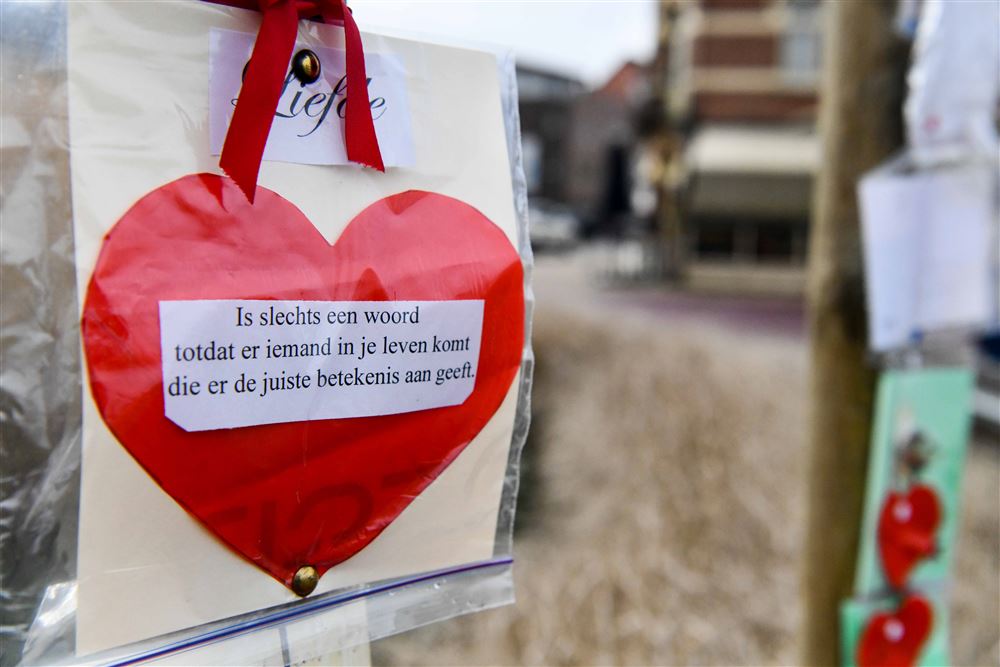 Liefde
Is slechts een woord
totdat er iemand in je leven komt
die er de juiste betekenis aan geeft.